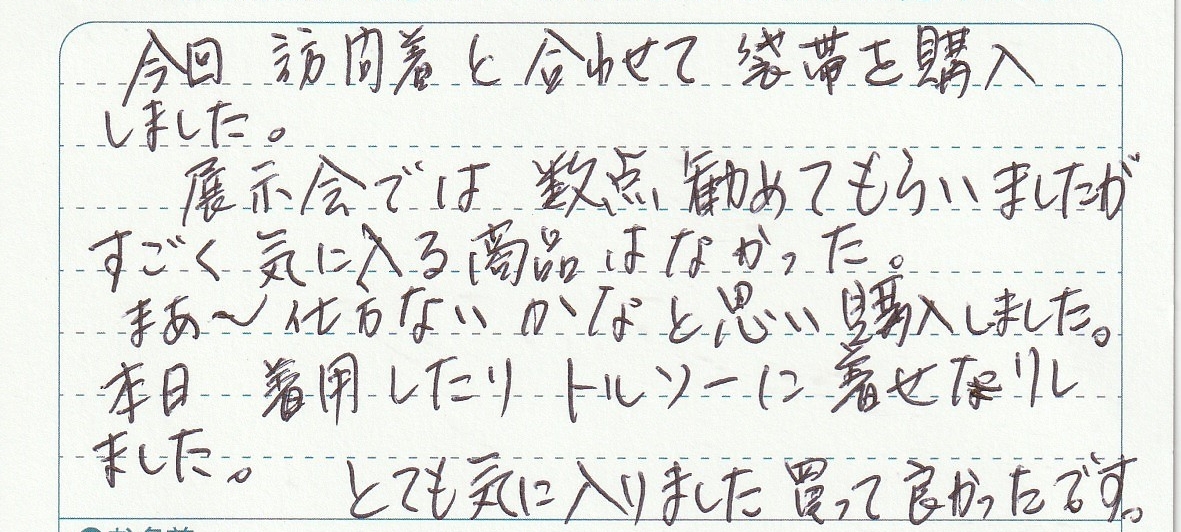 今回 訪問着と合わせて 袋帯を購入
しました。
展示会では 数点 勧めてもらいましたが
すごく 気に入る商品はなかった。
まあ〜仕方ないかなと思い購入しました。
本日 着用したり トルソーに着せたりし
ました。
とても気に入りました買って良かったです。